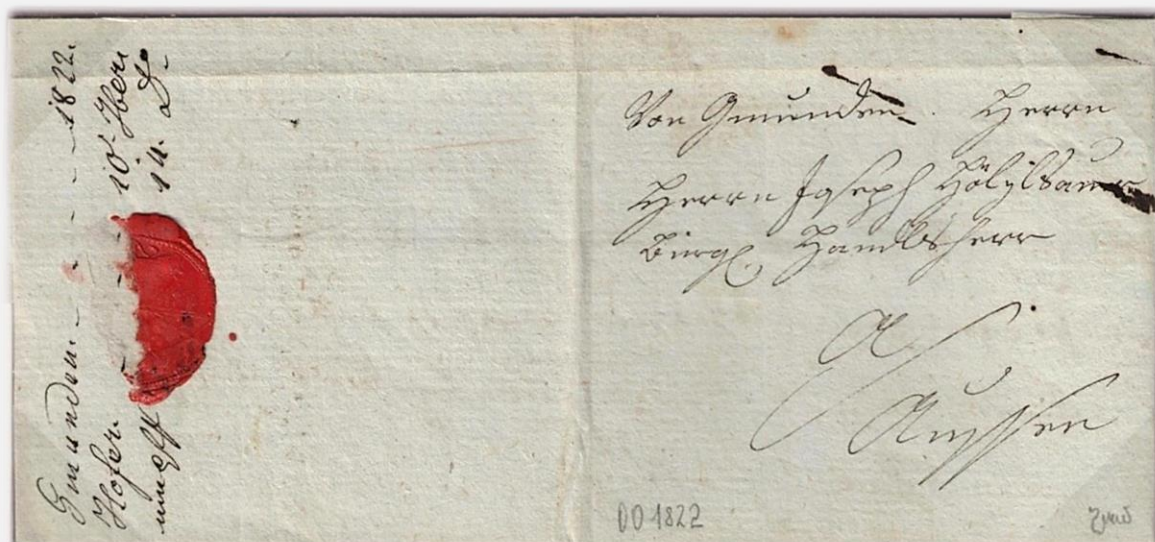 Gmunden - - - - 1822.
Hofer 10 7ber
14. D.
Von Gmunden. Herrn
Herrn Joseph Hölzlsauer
bürgl. Handelsherr
a
Aussee
DO 1822